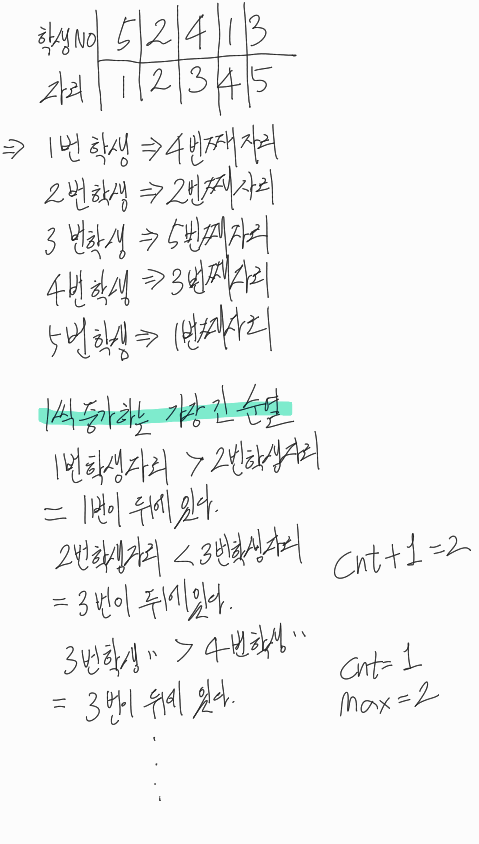 학생NO 5 2 4 1 3
자리 1 2 3 4 5
⇒ 1번 학생 ⇒ 4번째 자리
2번학생 ⇒ 2번째 자리
3번학생 ⇒ 5번째 자리
4번학생 ⇒ 3번째 자리
5번학생 ⇒ 1번째 자리
1씩 증가하는 가장 긴 수열
1번학생자리 > 2번학생자리
= 1번이 뒤에 있다.
2번학생자리 < 3번학생자리
cnt+1=2
= 3번이 뒤에있다.
3번학생 〃 > 4번학생 〃
cnt=1
= 3번이 뒤에 있다.
max=2